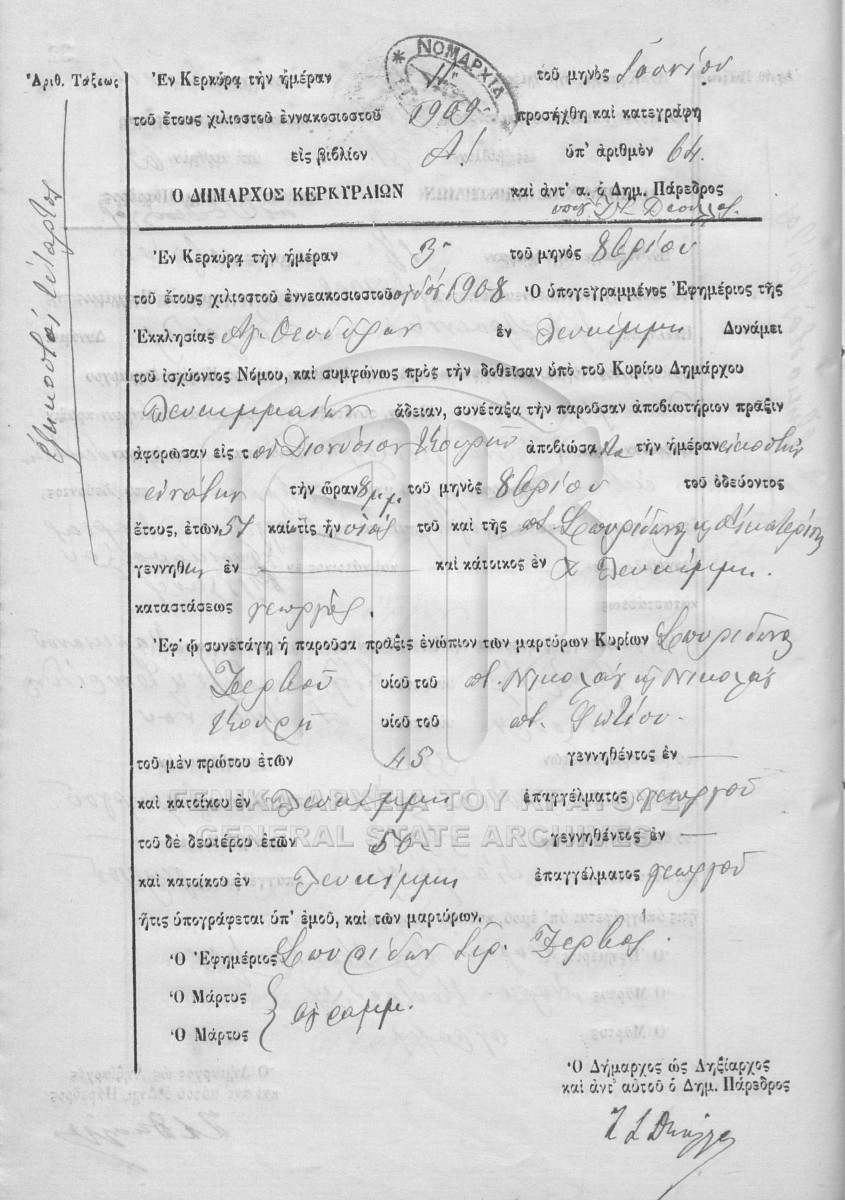 Ἀριθ. Τάξεως
ἑξηκοστὸς τέταρτος
ΝΟΜΑΡΧΙΑ
Ἐν Κερκύρᾳ τὴν ἡμέραν 11 τοῦ μηνὸς Ἰουνίου
τοῦ ἔτους χιλιοστοῦ ἐννακοσιοστοῦ 1909 προσήχθη καὶ κατεγράφη
εἰς βιβλίον Α! ὑπ' ἀριθμὸν 64.
Ο ΔΗΜΑΡΧΟΣ ΚΕΡΚΥΡΑΙΩΝ καὶ ἀντ' α. ὁ Δημ. Πάρεδρος
Ἐν Κερκύρᾳ τὴν ἡμέραν 3 τοῦ μηνὸς 8βρίου
τοῦ ἔτους χιλιοστοῦ ἐννεακοσιοστοῦ ογδόου 1908 Ὁ ὑπογεγραμμένος Ἐφημέριος τῆς
Ἐκκλησίας Αγ. Θεοδώρων ἐν Λευκίμμῃ Δυνάμει
τοῦ ἰσχύοντος Νόμου, καὶ συμφώνως πρὸς τὴν δοθεῖσαν ὑπὸ τοῦ Κυρίου Δημάρχου
Λευκιμμαίων ἄδειαν, συνέταξα τὴν παροῦσαν ἀποβιωτήριον πρᾶξιν
ἀφορῶσαν εἰς τὸν Διονύσιον Κουρῆν ἀποβιώσαντα τὴν ἡμέραν εἰκοστὴν
ἐνάτην τὴν ὥραν 8 μ.μ. τοῦ μηνὸς 8βρίου τοῦ ὁδεύοντος
ἔτους, ἐτῶν 57 καὶ τις ἦν υἱὸς τοῦ καὶ τῆς ποτ. Σπυρίδωνος κ Αἰκατερίνης
γεννηθεὶς ἐν καὶ κάτοικος ἐν Χ Λευκίμμῃ.
καταστάσεως γεωργός.
Ἐφ' ᾧ συνετάγη ἡ παροῦσα πρᾶξις ἐνώπιον τῶν μαρτύρων Κυρίων Σπυρίδωνος
Ζερβοῦ υἱοῦ τοῦ ποτ. Νικολάου κ Νικολάου
Κουρῆ υἱοῦ τοῦ ποτ. Φωτίου.
τοῦ μὲν πρώτου ἐτῶν 45 γεννηθέντος ἐν
καὶ κατοίκου ἐν Λευκίμμῃ ἐπαγγέλματος γεωργοῦ
ΓΕΝΙΚΑ ΑΡΧΕΙΑ ΤΟΥ ΚΡΑΤΟΥΣ
GENERAL STATE ARCHIVES
τοῦ δὲ δευτέρου ἐτῶν 50 γεννηθέντος ἐν
καὶ κατοίκου ἐν Λευκίμμῃ ἐπαγγέλματος γεωργοῦ
ἥτις ὑπογράφεται ὑπ' ἐμοῦ, καὶ τῶν μαρτύρων.
Ὁ Ἐφημέριος Σπυρίδων Ἱερ. Ζερβος.
Ὁ Μάρτυς
ἀγραμμ.
Ὁ Μάρτυς
Ὁ Δήμαρχος ὡς Ληξίαρχος
καὶ ἀντ' αὐτοῦ ὁ Δημ. Πάρεδρος